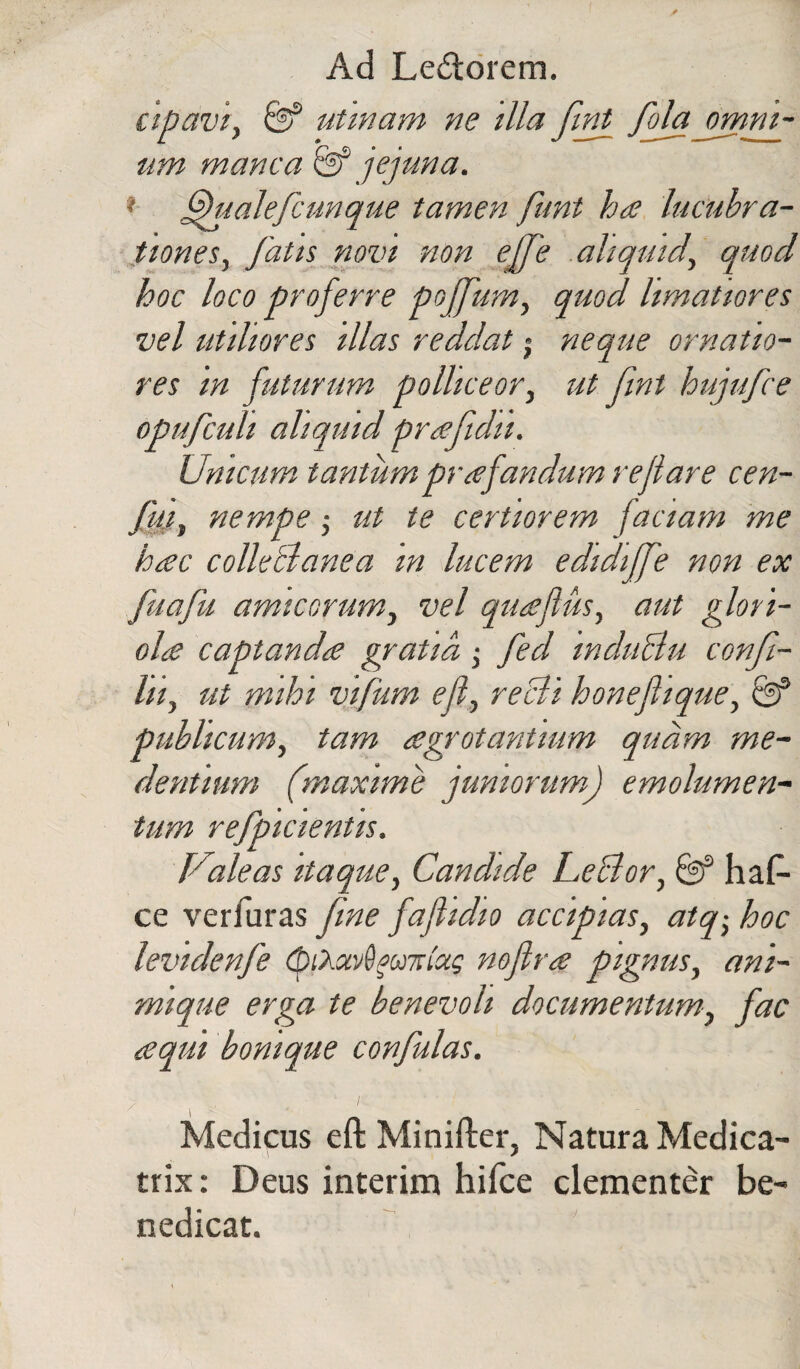 Ad Lectorem.
cipavi, & utinam ne illa ſint ſola omni-
um manca & jejuna.
Qualeſcunque tamen ſunt hæ lucubra-
tiones, ſatis novi non eſſe aliquid, quod
hoc loco proferre poſſum, quod limatiores
vel utiliores illas reddat; neque ornatio-
res in futurum polliceor, ut ſint hujuſce
opuſculi aliquid præſidii.
Unicum tantùm præfandum reſtare cen-
ſui, nempe; ut te certiorem faciam me
hæc collectanea in lucem edidiſſe non ex
ſuaſu amicorum, vel quæſtûs, aut glori-
olæ captandæ gratiâ; ſed inductu conſi-
lii, ut mihi viſum eſt, recti honeſtique, &
publicum, tam ægrotantium quàm me-
dentium (maximè juniorum) emolumen-
tum reſpicientis.
Valeas itaque, Candide Lector, & haſ-
ce verſuras ſine faſtidio accipias, atq; hoc
levidenſe φιλανθρωπίας noſtræ pignus, ani-
mique erga te benevoli documentum, fac
æqui bonique conſulas.
Medicus eſt Miniſter, Natura Medica-
trix: Deus interim hiſce clementèr be-
nedicat.